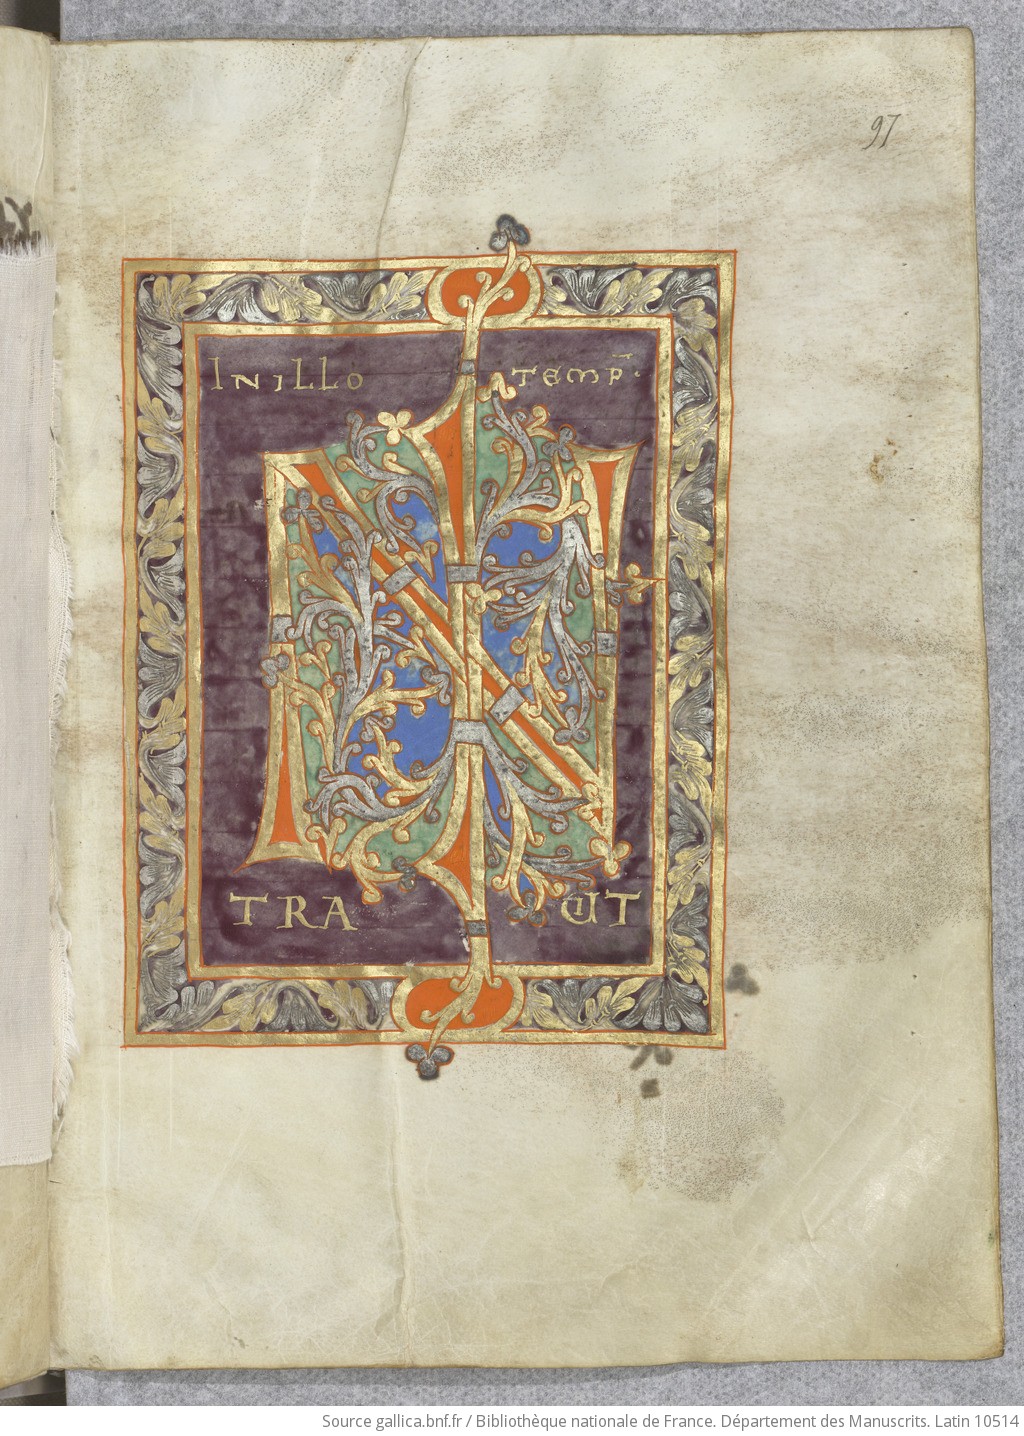 97
IN ILLO TEMP̅.
IN
TRA UIT
Source gallica.bnf.fr / Bibliothèque nationale de France. Département des Manuscrits. Latin 10514